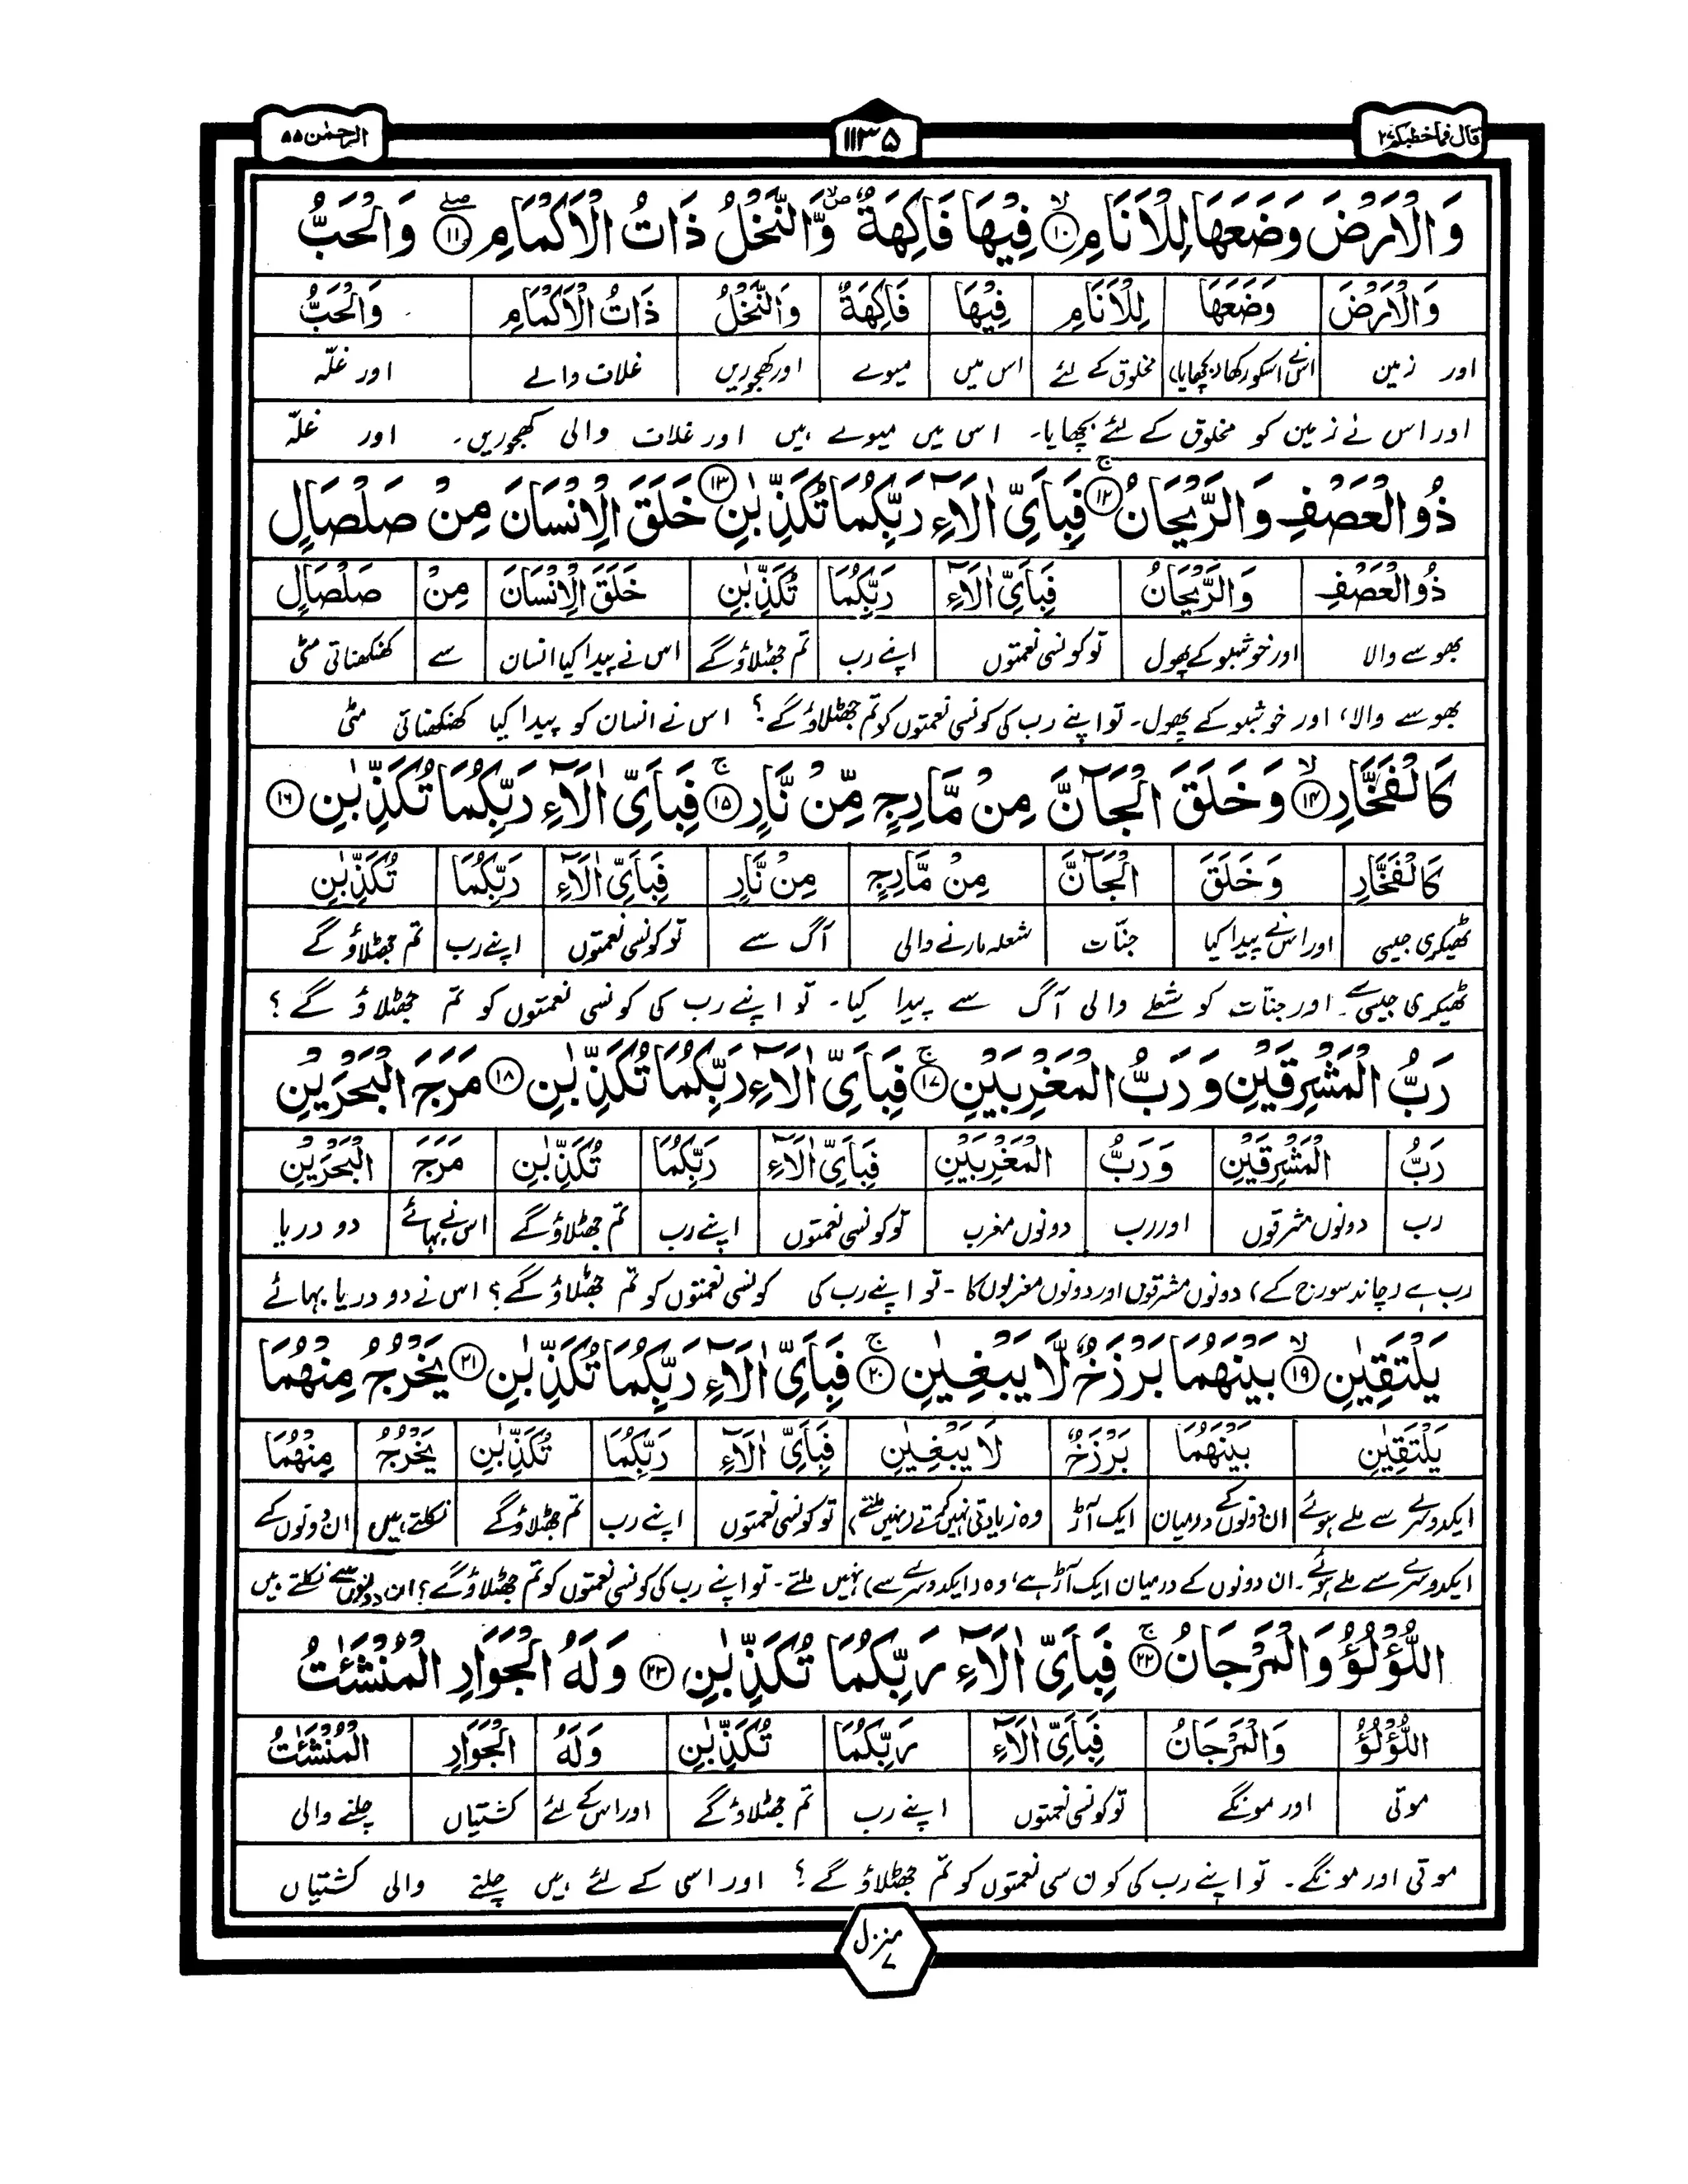 قال فما خطبكم ٢٧
١١٣٥
الرحمٰن ٥٥
وَالْاَرْضَ وَضَعَهَا لِلْاَنَامِ ۙ ١٠ فِيْهَا فَاكِهَةٌ ۪ۙ وَّالنَّخْلُ ذَاتُ الْاَكْمَامِ ۖ ١١ وَالْحَبُّ
وَالْاَرْضَ وَضَعَهَا لِلْاَنَامِ فِيْهَا فَاكِهَةٌ وَالنَّخْلُ ذَاتُ الْاَكْمَامِ وَالْحَبُّ
اور زمین اس نے اسکو رکھا (بچھایا) مخلوق کے لئے اس میں میوے اور کھجوریں غلاف والے اور غلّہ
اور اس نے زمین کو مخلوق کے لئے بچھایا۔ اس میں میوے ہیں اور غلاف والی کھجوریں۔ اور غلّہ
ذُو الْعَصْفِ وَالرَّيْحَانُ ۚ ١٢ فَبِاَيِّ اٰلَآءِ رَبِّكُمَا تُكَذِّبٰنِ ١٣ خَلَقَ الْاِنْسَانَ مِنْ صَلْصَالٍ
ذُو الْعَصْفِ وَالرَّيْحَانُ فَبِاَيِّ اٰلَآءِ رَبِّكُمَا تُكَذِّبٰنِ خَلَقَ الْاِنْسَانَ مِنْ صَلْصَالٍ
بھوسے والا اور خوشبو کے پھول تو کونسی نعمتوں اپنے رب تم جھٹلاؤ گے اس نے پیدا کیا انسان سے کھنکھناتی مٹی
بھوسے والا، اور خوشبو کے پھول۔ تو اپنے رب کی کونسی نعمتوں کو تم جھٹلاؤ گے؟ اس نے انسان کو پیدا کیا کھنکھناتی مٹی
كَالْفَخَّارِ ۙ ١٤ وَخَلَقَ الْجَآنَّ مِنْ مَّارِجٍ مِّنْ نَّارٍ ۚ ١٥ فَبِاَيِّ اٰلَآءِ رَبِّكُمَا تُكَذِّبٰنِ ١٦
كَالْفَخَّارِ وَخَلَقَ الْجَآنَّ مِنْ مَّارِجٍ مِنْ نَّارٍ فَبِاَيِّ اٰلَآءِ رَبِّكُمَا تُكَذِّبٰنِ
ٹھیکری جیسی اور اس نے پیدا کیا جنّات شعلہ مارنے والی آگ سے تو کونسی نعمتوں اپنے رب تم جھٹلاؤ گے
ٹھیکری جیسی سے۔ اور جنّات کو شعلے والی آگ سے پیدا کیا۔ تو اپنے رب کی کونسی نعمتوں کو تم جھٹلاؤ گے؟
رَبُّ الْمَشْرِقَيْنِ وَرَبُّ الْمَغْرِبَيْنِ ۚ ١٧ فَبِاَيِّ اٰلَآءِ رَبِّكُمَا تُكَذِّبٰنِ ١٨ مَرَجَ الْبَحْرَيْنِ
رَبُّ الْمَشْرِقَيْنِ وَرَبُّ الْمَغْرِبَيْنِ فَبِاَيِّ اٰلَآءِ رَبِّكُمَا تُكَذِّبٰنِ مَرَجَ الْبَحْرَيْنِ
رب دونوں مشرقوں اور رب دونوں مغرب تو کونسی نعمتوں اپنے رب تم جھٹلاؤ گے اس نے بہائے دو دریا
رب ہے (چاند سورج کے) دونوں مشرقوں اور دونوں مغربوں کا۔ تو اپنے رب کی کونسی نعمتوں کو تم جھٹلاؤ گے؟ اس نے دو دریا بہائے
يَلْتَقِيٰنِ ۙ ١٩ بَيْنَهُمَا بَرْزَخٌ لَّا يَبْغِيٰنِ ۚ ٢٠ فَبِاَيِّ اٰلَآءِ رَبِّكُمَا تُكَذِّبٰنِ ٢١ يَخْرُجُ مِنْهُمَا
يَلْتَقِيٰنِ بَيْنَهُمَا بَرْزَخٌ لَا يَبْغِيٰنِ فَبِاَيِّ اٰلَآءِ رَبِّكُمَا تُكَذِّبٰنِ يَخْرُجُ مِنْهُمَا
ایکدوسرے سے ملے ہوئے ان دونوں کے درمیان ایک آڑ وہ زیادتی نہیں کرتے (نہیں ملتے) تو کونسی نعمتوں اپنے رب تم جھٹلاؤ گے نکلتے ہیں ان دونوں کے
ایکدوسرے سے ملے ہوئے۔ ان دونوں کے درمیان ایک آڑ ہے، وہ (ایکدوسرے سے) نہیں ملتے۔ تو اپنے رب کی کونسی نعمتوں کو تم جھٹلاؤ گے؟ ان دونوں سے نکلتے ہیں
اللُّؤْلُؤُ وَالْمَرْجَانُ ۚ ٢٢ فَبِاَيِّ اٰلَآءِ رَبِّكُمَا تُكَذِّبٰنِ ٢٣ وَلَهُ الْجَوَارِ الْمُنْشَئٰتُ
اللُّؤْلُؤُ وَالْمَرْجَانُ فَبِاَيِّ اٰلَآءِ رَبِّكُمَا تُكَذِّبٰنِ وَلَهُ الْجَوَارِ الْمُنْشَئٰتُ
موتی اور مونگے تو کونسی نعمتوں اپنے رب تم جھٹلاؤ گے اور اس کے لئے کشتیاں چلنے والی
موتی اور مونگے۔ تو اپنے رب کی کون سی نعمتوں کو تم جھٹلاؤ گے؟ اور اسی کے لئے ہیں چلنے والی کشتیاں
منزل ٧